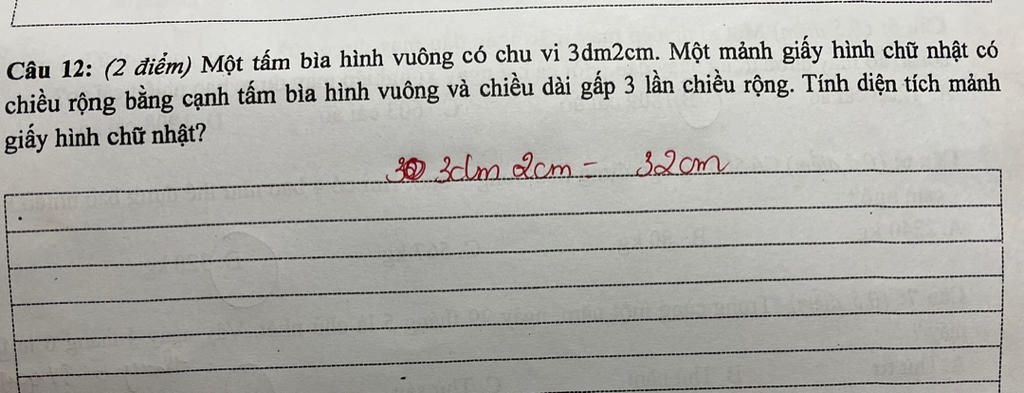 Câu 12: (2 điểm) Một tấm bìa hình vuông có chu vi 3dm2cm. Một mảnh giấy hình chữ nhật có
chiều rộng bằng cạnh tấm bìa hình vuông và chiều dài gấp 3 lần chiều rộng. Tính diện tích mảnh
giấy hình chữ nhật?
3dm 2cm = 32cm